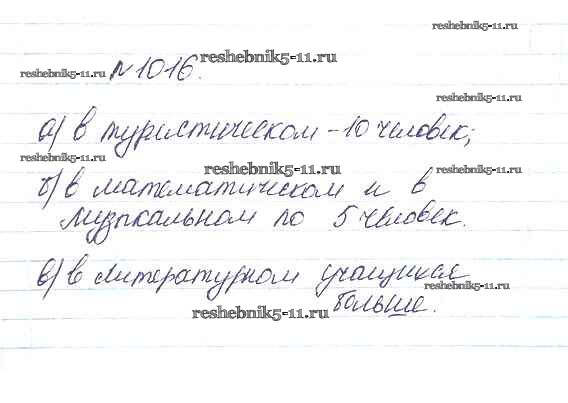 reshebnik5-11.ru
reshebnik5-11.ru
reshebnik5-11.ru
№1016.
reshebnik5-11.ru
а) в туристическом - 10 человек;
reshebnik5-11.ru
reshebnik5-11.ru
reshebnik5-11.ru
б) в математическом и в
музыкальном по 5 человек.
в) в литературном учащихся
reshebnik5-11.ru
больше.
reshebnik5-11.ru